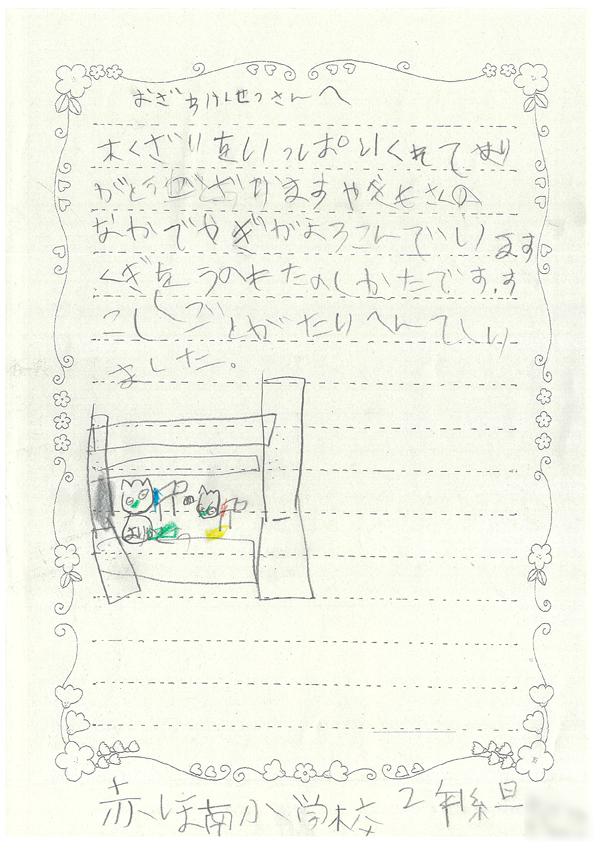 おざわけんせつさんへ
木くざいをいっぱいくれてあり
がとうございますやぎもさくの
なかでやぎがよろこんでいます
くぎをうのもたのしかたです。す
こしごとがたいへんてしり
ました。
赤ほ南小学校 2年組